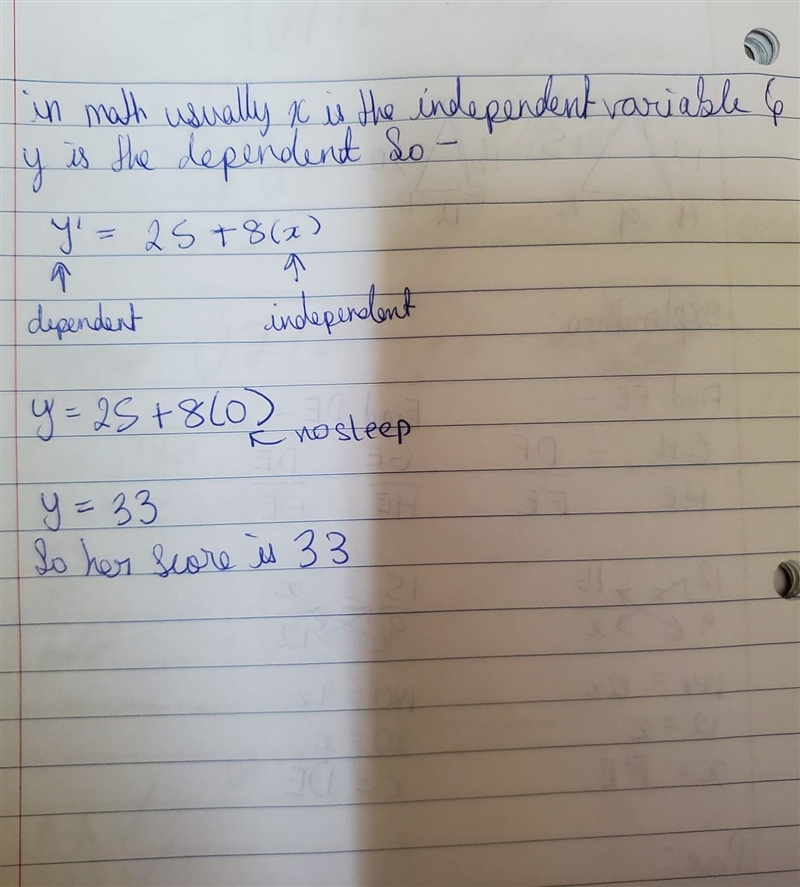 in math usually x is the independent variable &
y is the dependent So -
y' = 25 + 8(x)
↑ ↑
dependent independent
y = 25 + 8(0)
← no sleep
y = 33
So her score is 33